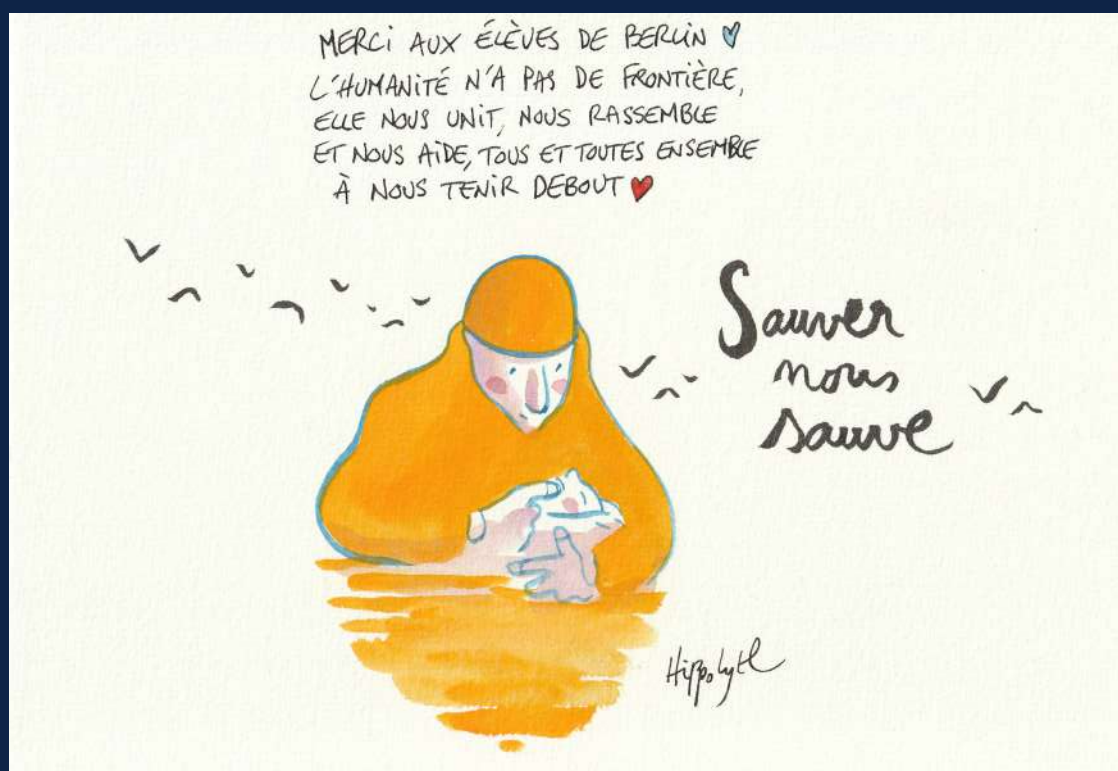 MERCI AUX ÉLÈVES DE BERLIN
L'HUMANITÉ N'A PAS DE FRONTIÈRE,
ELLE NOUS UNIT, NOUS RASSEMBLE
ET NOUS AIDE, TOUS ET TOUTES ENSEMBLE
À NOUS TENIR DEBOUT
Sauver
nous
sauve
Hippolyte